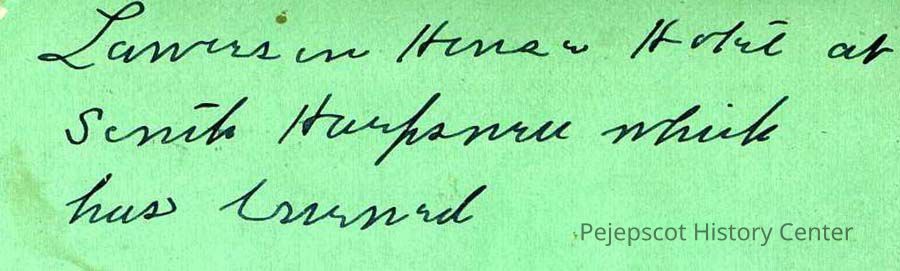 Hotel at
South Harpswell which
has burned
Pejepscot History Center